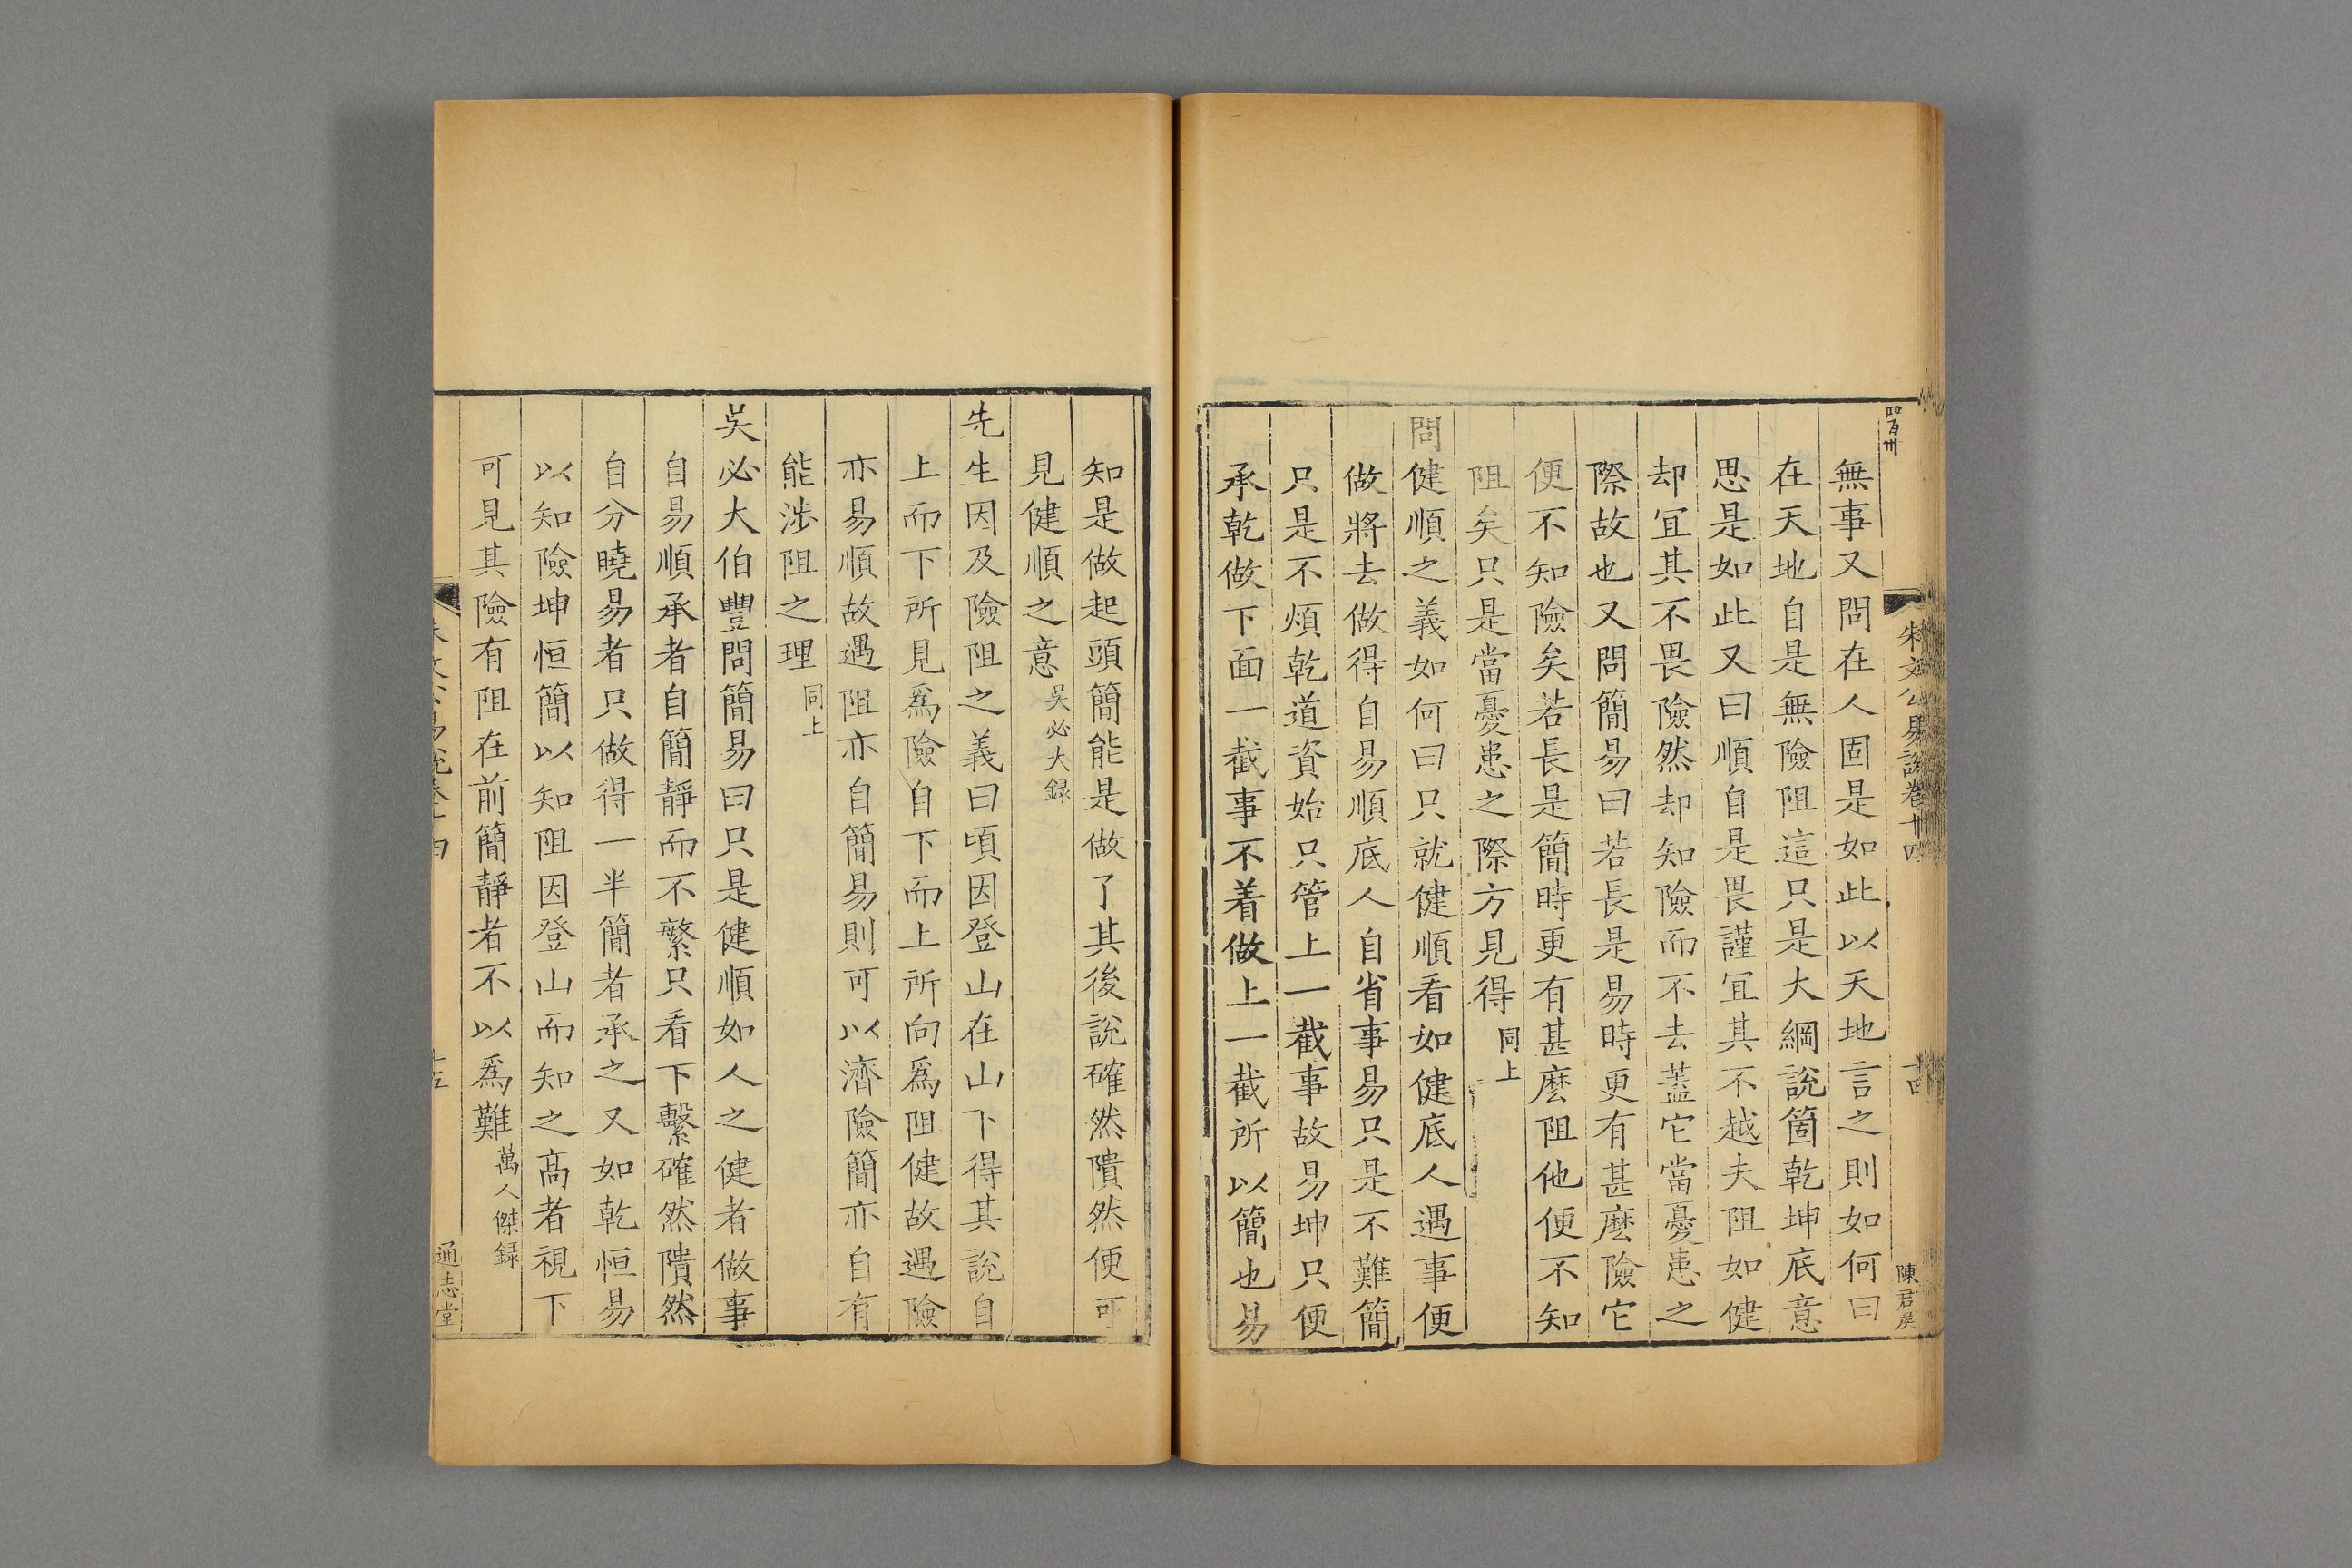 四百卅
朱文公易說卷十四
十四
陳君侯
無事又問在人固是如此以天地言之則如何曰
在天地自是無險阻這只是大綱說箇乾坤底意
思是如此又曰順自是畏謹冝其不越夫阻如健
却冝其不畏險然却知險而不去葢它當憂患之
際故也又問簡易曰若長是易時更有甚麽險它
便不知險矣若長是簡時更有甚麽阻他便不知
阻矣只是當憂患之際方見得同上
問健順之義如何曰只就健順看如健底人遇事便
做將去做得自易順底人自省事易只是不難簡
只是不煩乾道資始只管上一截事故易坤只便
承乾做下面一截事不着做上一截所以簡也易
知是做起頭簡能是做了其後說確然隤然便可
見健順之意吳必大録
先生因及險阻之義曰頃因登山在山下得其說自
上而下所見爲險自下而上所向爲阻健故遇險
亦易順故遇阻亦自簡易則可以濟險簡亦自有
能涉阻之理同上
吳必大伯豐問簡易曰只是健順如人之健者做事
自易順承者自簡靜而不繁只看下繫確然隤然
自分曉易者只做得一半簡者承之又如乾恒易
以知險坤恒簡以知阻因登山而知之高者視下
可見其險有阻在前簡靜者不以爲難萬人傑録
十五
通志堂